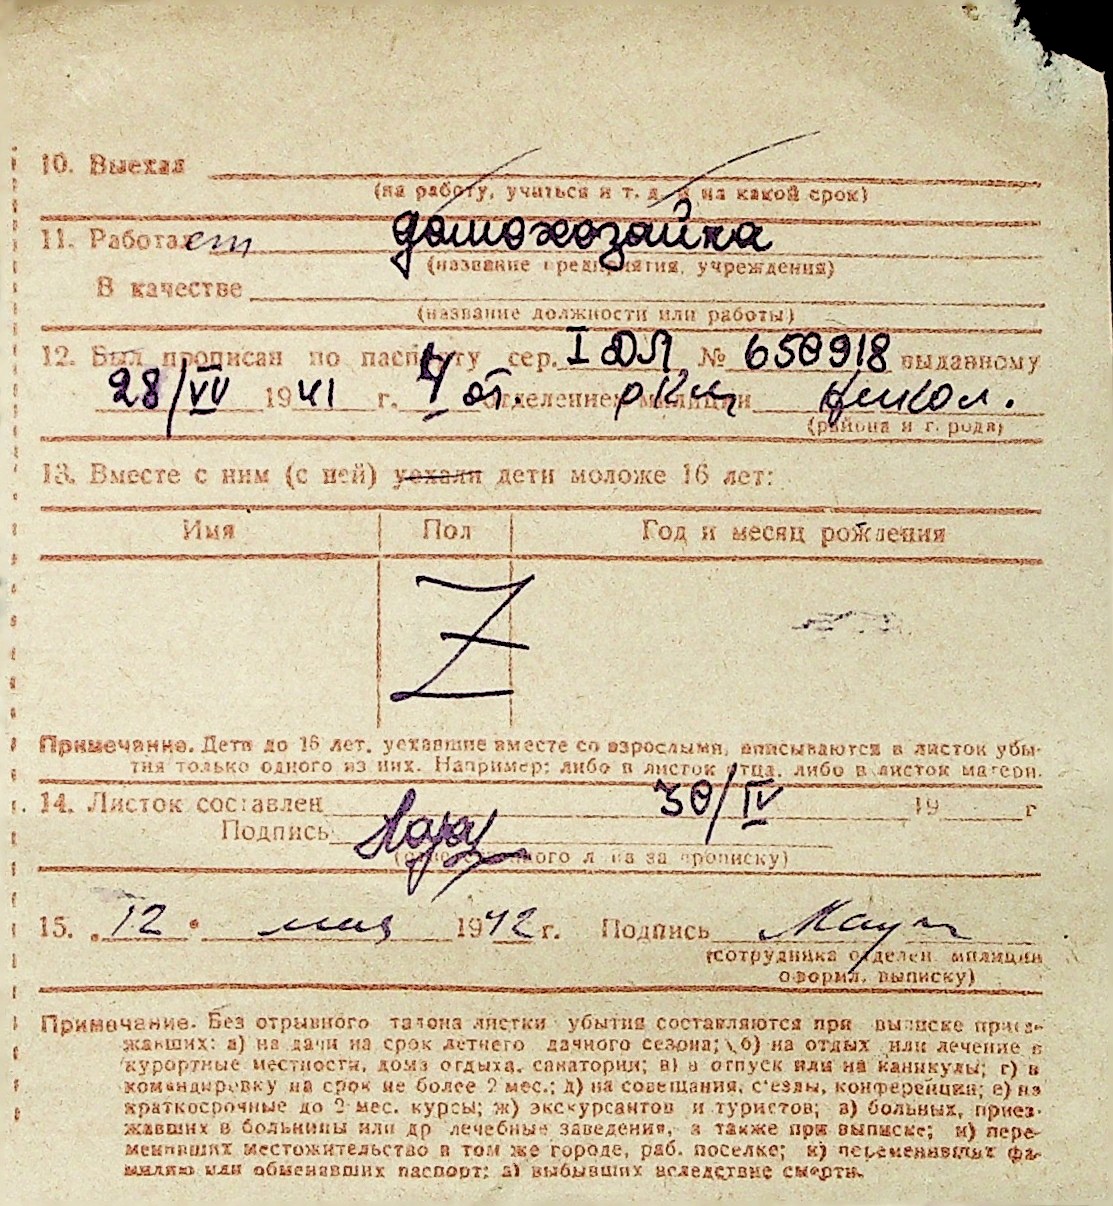 10. Выехал
(на работу, учиться и т. д. и на какой срок)
11. Работает домохозайка
(название предприятия, учреждения)
В качестве
(название должности или работы)
12. Был прописан по паспорту сер. I ДЛ № 650918 выданному
28/VII 1941 г. от. отделением милиции
(района и города)
13. Вместе с ним (с ней) уехали дети моложе 16 лет:
Имя Пол Год и месяц рождения
Z
Примечание. Дети до 16 лет, уехавшие вместе со взрослыми, вписываются в листок убы-
тия только одного из них. Например: либо в листок отца, либо в листок матери.
14. Листок составлен 30/IV 19 г
Подпись
(ответственного лица за прописку)
15. "12" мая 1942 г. Подпись
(сотрудника отделен. милиции
оформл. выписку)
Примечание. Без отрывного талона листки убытия составляются при выписке приез-
жавших: а) на дачи на срок летнего дачного сезона; б) на отдых или лечение в
курортные местности, дома отдыха, санатории; в) в отпуск или на каникулы; г) в
командировку на срок не более 2 мес.; д) на совещания, съезды, конференции; е) на
краткосрочные до 2 мес. курсы; ж) экскурсантов и туристов; з) больных, приез-
жавших в больницы или др лечебные заведения, а также при выписке; и) пере-
менивших местожительство в том же городе, раб. поселке; к) переменивших фа-
милию или обменявших паспорт; л) выбывших вследствие смерти.